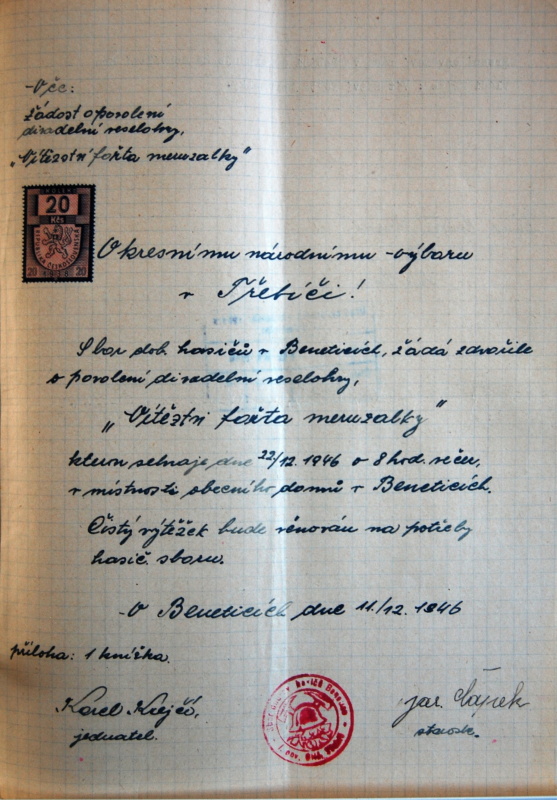 Věc:
žádost o povolení
divadelní veselohry,
"Vítězství fořta meruzalky"
KOLEK
20
Kčs
REPUBLIKA ČESKOSLOVENSKÁ
20 1938 20
Okresnímu národnímu výboru
v Třebíči!
Sbor dob. hasičů v Beneticích, žádá zdvořile
o povolení divadelní veselohry,
"Vítěztví fořta meruzalky"
kterou sehraje dne 22/12. 1946 o 8 hod. večer,
v místnosti obecního domů v Beneticích.
Čistý výtěžek bude věnován na potřeby
hasič. sboru.
V Beneticích dne 11./12. 1946
příloha: 1 knížka.
Karel Krejčí,
jednatel.
Jar. Čápek
starosta.